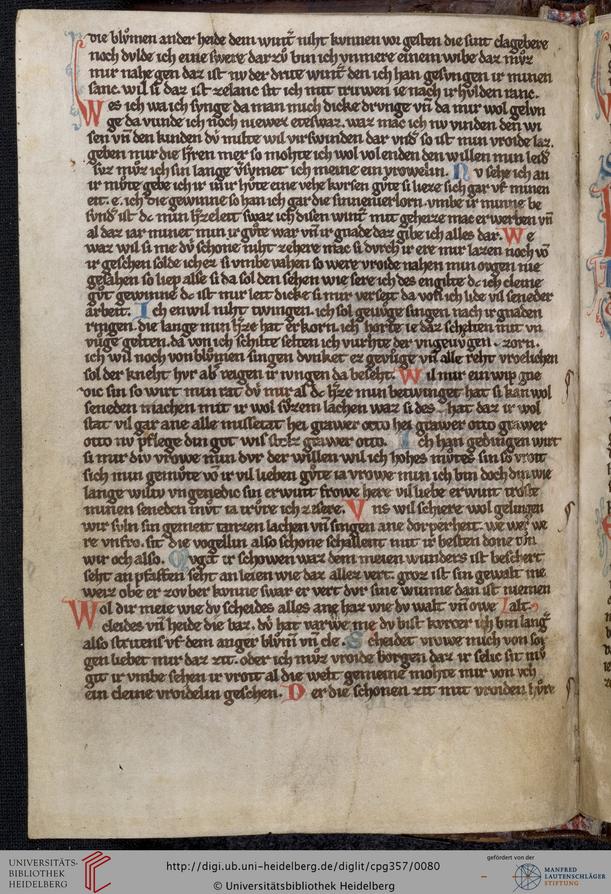 die blůmen ander heide dem wint͛ niht kvnnen vor gesten die sint clagebere
noch dvlde ich eine swere dar zů bin ich ynmere einem wibe daz můz
mir nahe gen daz ist nv der drite wint͛ den ich han gesvngen ir minen
sanc. wil si daz ist zelanc sit ich mit triwen ie nach ir hvlden ranc.
Wes ich wa ich synge da man mich dicke drvnge vn̄ da mir wol gelvn
ge da vunde ich noch niewez eteswaz. waz mac ich nv vinden den wi
sen vn̄ den kunden dv milte wil virswinden dar vnd͛ so ist min vroide laz.
geben mir die h͛ren mer so mohte ich wol vol enden den willen min
můz ich sin lange v͛symet ich meine ein yrowelin. Nv sehe ich an
ir můte gebe ich ir hvte eine vehe kvrsen gůte si lieze sich gar vf minen
eit. e. ich die gewinne so han ich gar die sinne virlorn. vmbe ir minne be
svnd͛ ist dc min h͛ze leit swaz ich disen wint͛ mit geheize mac er werben vn̄
al daz iar minet min ir gůte war vn̄ ir gnade daz gibe ich alles dar. We
waz wil si mie dv schone niht zehere mac si dvrch ir ere mir lazen noch vō
ir geschen solde ich ez si vmbe vahen so were vroide nahen min ovgen nie
gesahen so liep alse si da sol den sehen wie sere ich des engilte dc ich cleine
gůt gewinne dc ist mir leit dicke si mir verseit da von ich lide vil seneder
arbeit. Ich enwil niht twingen. ich sol gevůge singen nach ir gnaden
ringen. die lange min h͛ze hat erkorn. ich horte ie daz schelten mit vn
vůge gelten. da von ich schilte selten ich vurhte der vngevvgen. zorn.
ich wil noch von blůmen singen dvnket ez gevůge vn̄ alle reht vroelichen
sol der kneht hvr ab͛ reigen ir ivngen da beseht. Wil mir ein wip gne
dic sin so wirt min rat dv mir al dc h͛ze min betwinget hat si kan wol
seneden machen mit ir wol sůzem lachen waz si des hat daz ir wol
stat vil gar ane alle missetat hei grawer otto hei grawer otto grawer
otto nv pflege din got wis stolz grawer otto. Ich han gedingen wirt
si mir div vrowe min dvr der willen wil ich hohes můtes sin so vrōit
sich min gemůte vō ir vil lieben gůte ia vrowe min ich bin doch din wie
lange wiltv vngenedic sin erwint frowe here vil liebe erwint troste
minen seneden můt ia trvre ich ze sere. Vns wil schiere wol gelingen
wir svln sin gemeit tanzen lachen vn̄ singen ane dorperheit. we wer we
re vnfro. sit die vogellin also schone schallent mit ir besten done tůn
wir och also. Mvget ir schowen waz dem meien wunders ist beschert
seht an pfaffen seht an leien wie daz allez vert. groz ist sin gewalt ine
weiz obe er zovber kvnne swar er vert dvr sine wunne dan ist niemen
alt. Wol dir meie wie dv scheides alles ane haz wie dv walt vn̄ owe
cleides vn̄ heide die baz. dv hat varwe me dv bist kvrcer ich bin lang͛
also stritens vf dem anger blůmē vn̄ cle. Scheidet vrowe mich von sor
gen liebet mir daz zit. oder ich můz vroide borgen daz ir selic sit mv
git ir vmbe sehen ir vroit al die welt gemeine mohte mir von vch
ein cleine vroidelin geschen. Der die schonen zit mit vroiden hǒre
UNIVERSITÄTS-
BIBLIOTHEK
HEIDELBERG
http://digi.ub.uni-heidelberg.de/diglit/cpg357/0080
© Universitätsbibliothek Heidelberg
gefördert von der
MANFRED
LAUTENSCHLÄGER
STIFTUNG